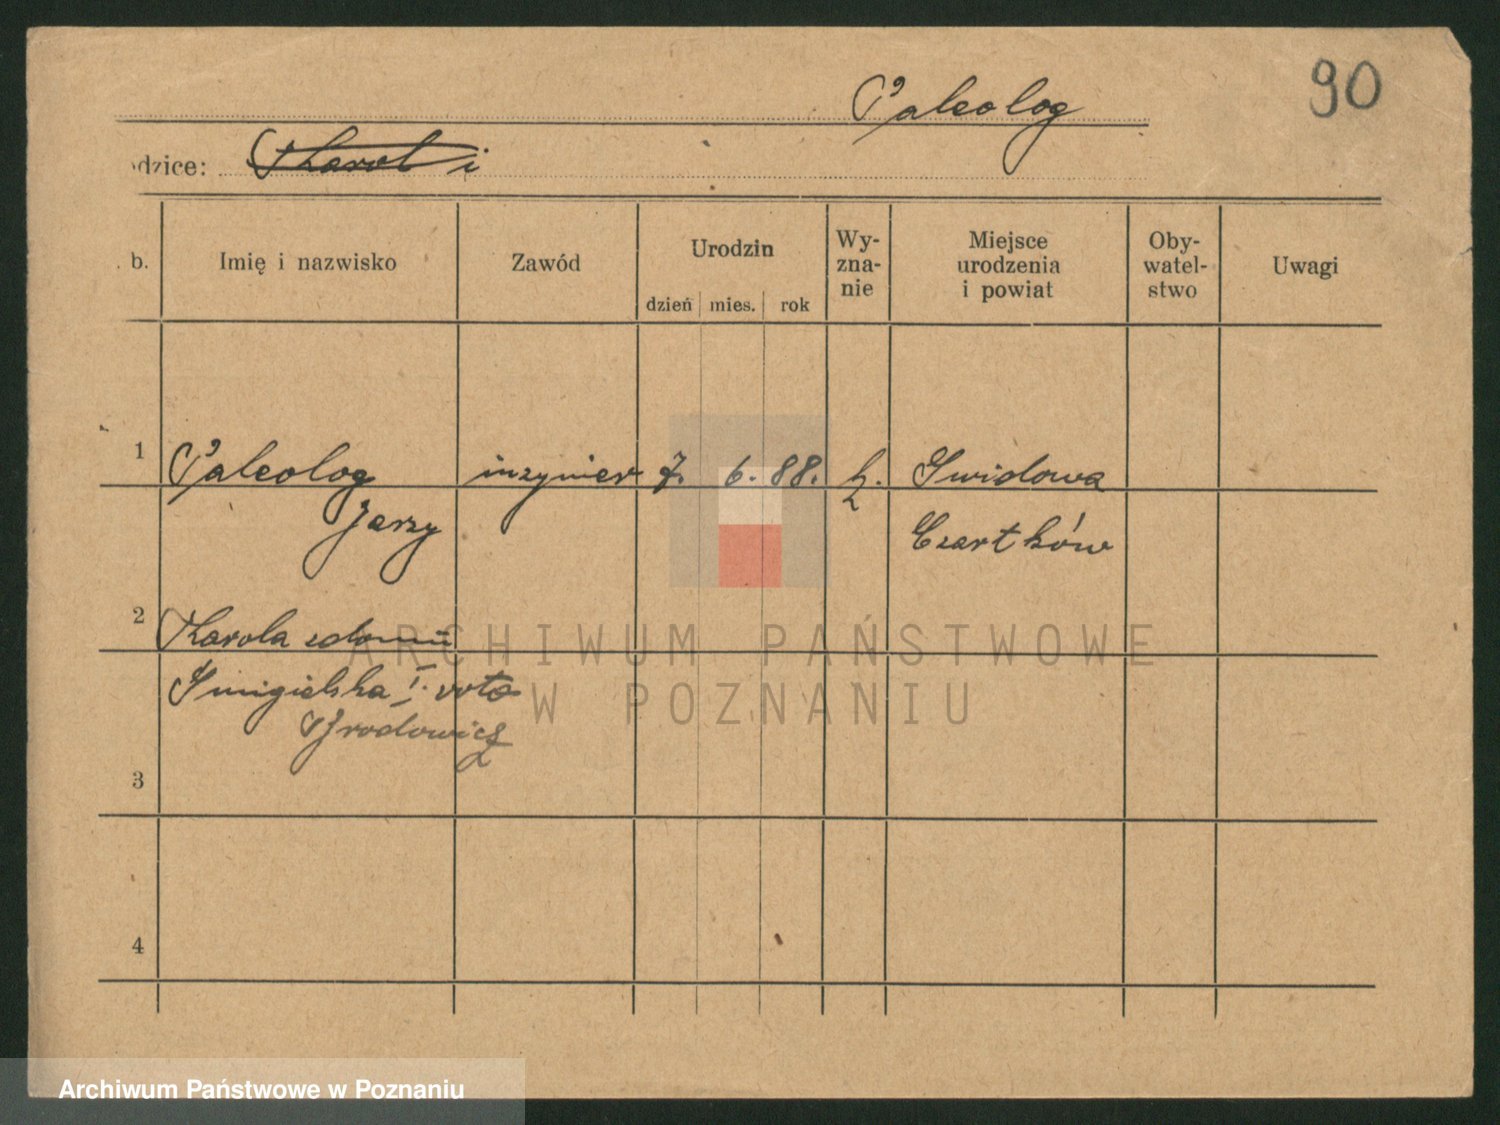 90
Paleolog
odzice: Karol i
. b.
Imię i nazwisko
Zawód
Urodzin
dzień mies. rok
Wy-
zna-
nie
Miejsce
urodzenia
i powiat
Oby-
watel-
stwo
Uwagi
1
Paleolog inżynier 7. 6. 88. k. Swidowa
Jerzy Czartków
2
Karola zdomu
Smigielska I. voto
Brodowicz
3
4
ARCHIWUM PAŃSTWOWE
W POZNANIU
Archiwum Państwowe w Poznaniu